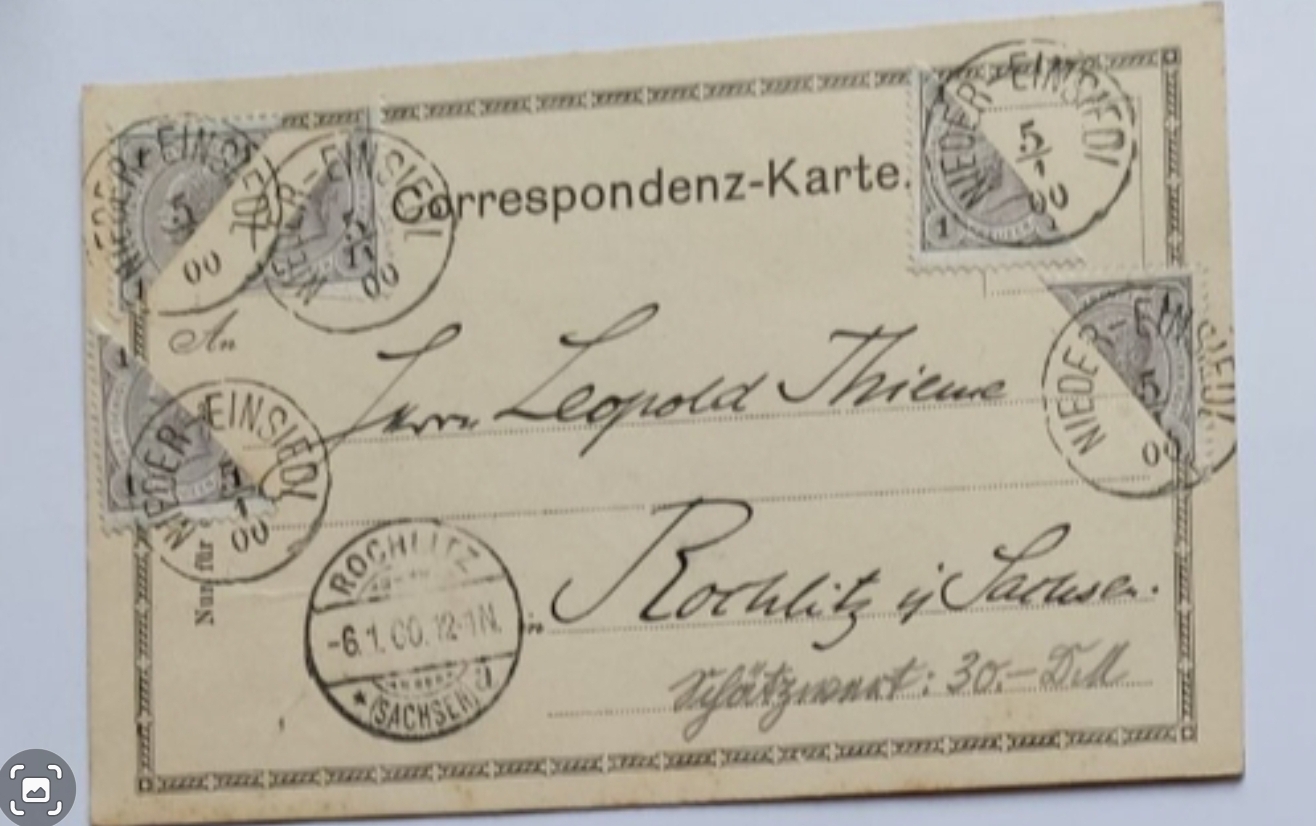 Correspondenz-Karte.
NIEDER-EINSIEDL
5/1
00
NIEDER-EINSIEDL
5/1
00
NIEDER-EINSIEDL
5/1
00
1
NIEDER-EINSIEDL
5
00
1
An
Herrn Leopold Thieme
NIEDER-EINSIEDL
5/1
00
1
1
Nur für
in Rochlitz i/ Sachsen.
ROCHLITZ
-6.1.00.12-1N.
* (SACHSEN)
Schätzwert: 30.- DM